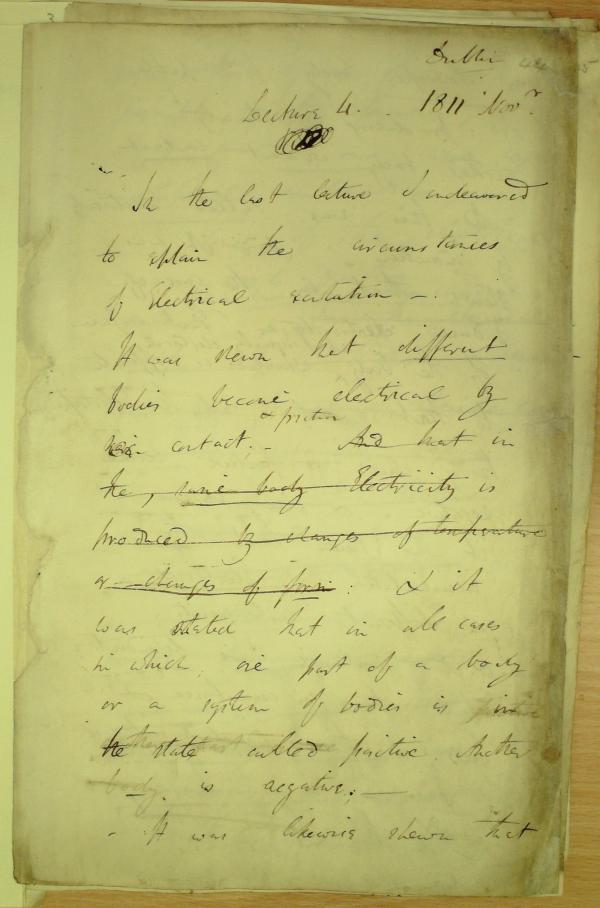 Dublin
Lecture 4. 1811 Novr.
"In the last lecture I endeavored
to explain the circumstances
of Electrical excitation -.
It was shewn that different
bodies become electrical by
& friction
contact; - And that in
the, same body Electricity is
produced by changes of temperature
or changes of form: & it
was stated that in all cases
in which, one part of a body
or a system of bodies is in
the state called positive Another
body is negative; -
- It was likewise shewn that